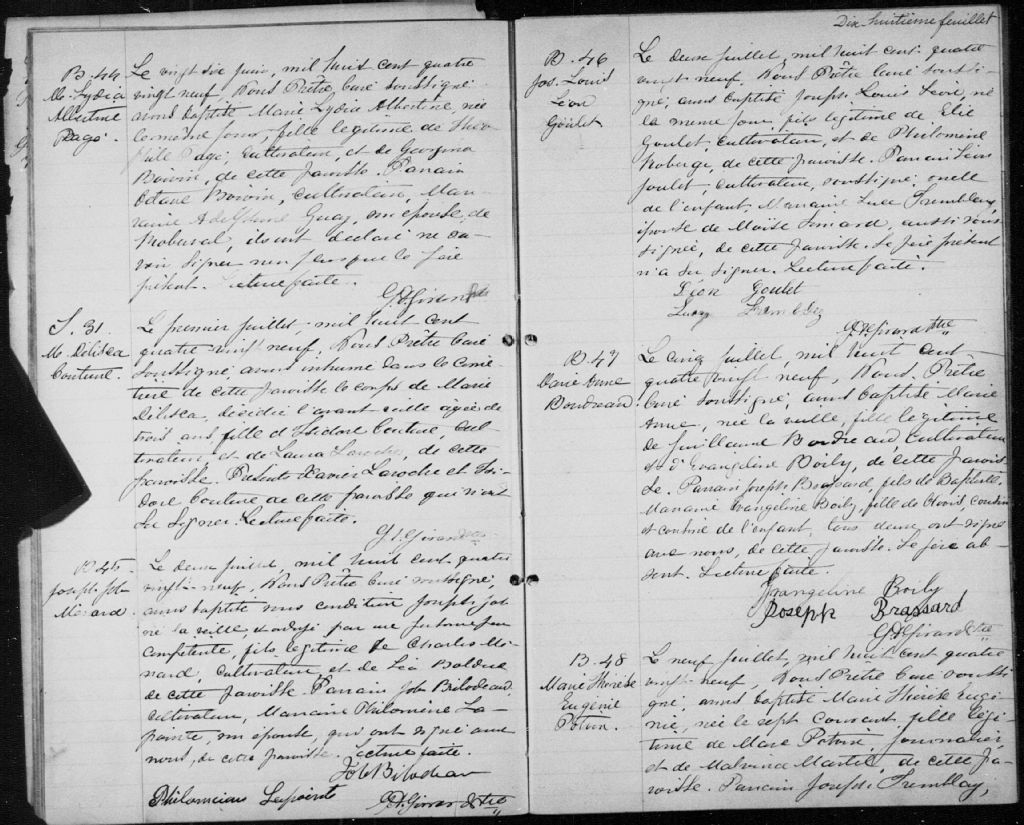 B. 44
M. Lydia
Albertine
Pagé.
Le vingt six juin, mil huit cent quatre
vingt neuf, Nous Prêtre Curé soussigné
avons baptisé Marie Lydia Albertine née
le même jour, fille légitime de Théo-
phile Pagé, cultivateur, et de Georgina
Boivin, de cette paroisse. Parrain
Octave Boivin, cultivateur, Mar-
raine Guay, son épouse, de
Roberval, ils ont déclaré ne sa-
voir signer non plus que le père
présent. Lecture faite.
G. A. Girard Ptre
S. 31.
M. Délisca
Couture.
Le premier juillet, mil huit cent
quatre vingt neuf, Nous Prêtre Curé
soussigné avons inhumé dans le cime-
tière de cette paroisse le corps de Marie
Délisca, décédée l'avant veille âgée de
trois ans fille d'Isidore Couture, cul-
tivateur, et de Laura Laroche, de cette
paroisse. Présents Xavier Laroche et Isi-
dore Couture de cette paroisse qui n'ont
su signer. Lecture faite.
G. A. Girard Ptre
B. 45
Joseph Job
Ménard.
Le deux juillet, mil huit cent quatre
vingt-neuf, Nous Prêtre Curé soussigné,
avons baptisé sous condition Joseph Job
né la veille, et ondoyé par une personne
compétente, fils légitime de Charles Mé-
nard, cultivateur, et de Léa Bolduc
de cette paroisse. Parrain Job Bilodeau
cultivateur, Marraine Philomène La-
pointe, son épouse, qui ont signé avec
nous, de cette paroisse. Lecture faite.
Job Bilodeau
Philomène Lapointe G. A. Girard Ptre
Dix-huitième feuillet
B. 46
Jos. Louis
Léon
Goulet
Le deux juillet, mil huit cent quatre
vingt neuf, Nous Prêtre Curé soussi-
gné, avons baptisé Joseph Louis Léon, né
le même jour, fils légitime de Elie
Goulet, cultivateur, et de Philomène
Roberge, de cette paroisse. Parrain Léon
Goulet, cultivateur, soussigné, oncle
de l'enfant. Marraine Luce Tremblay,
épouse de Moïse Simard, aussi sous
signée, de cette paroisse. Le père présent
n'a su signer. Lecture faite.
Léon Goulet
Lucy Tremblay
G. A. Girard Ptre
B. 47
Marie Anne
Boudreau.
Le cinq juillet, mil huit cent
quatre vingt neuf, Nous Prêtre
Curé soussigné, avons baptisé Marie
Anne, née la veille, fille légitime
de Guillaume Boudreau, cultivateur
et d'Evangeline Boily, de cette parois-
se. Parrain Joseph Brassard, fils de Baptiste.
Marraine Evangeline Boily, fille de Clovis, cousin
et cousine de l'enfant, tous deux ont signé
avec nous, de cette paroisse. Le père ab-
sent. Lecture faite.
Evangeline Boily
Joseph Brassard
G. A. Girard Ptre
B. 48
Marie Thérèse
Eugénie
Potvin.
Le neuf juillet, mil huit cent quatre
vingt-neuf, Nous Prêtre Curé soussi-
gné, avons baptisé Marie Thérèse Eugé-
nie, née le sept courant, fille légi-
time de Marc Potvin, journalier,
et de Malvina Martel, de cette pa-
roisse. Parrain Joseph Tremblay,